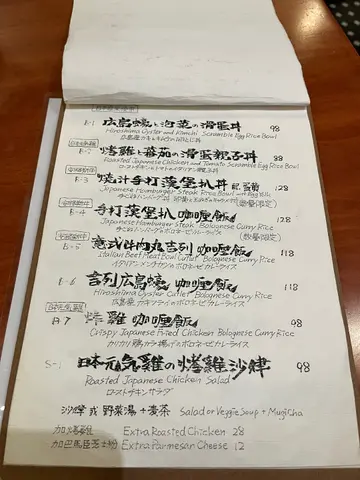 B-1 広島蠔と泡菜の滑蛋丼 98
Hiroshima Oyster and Kimchi Scramble Egg Rice Bowl
B-2 烤雞と蕃茄の滑蛋親子丼 88
Roasted Japanese Chicken and Tomato Scramble Egg Rice Bowl
B-3 燒汁手打漢堡扒丼 配 128
Japanese Hamburger Steak Rice Bowl with Egg
(数量限定)
B-4 手打漢堡扒 咖喱飯 128
Japanese Hamburger Steak Bolognese Curry Rice
手ごねハンバーグのボロネーゼカレーライス (数量限定)
B-5 意式牛肉丸吉列 咖喱飯 118
Italian Beef Meat Bowl Cutlet Bolognese Curry Rice
イタリアンメンチカツのボロネーゼカレーライス
B-6 吉列広島蠔 咖喱飯 118
Hiroshima Oyster Cutlet Bolognese Curry Rice
広島産カキフライのボロネーゼカレーライス
B-7 炸雞 咖喱飯 98
Crispy Japanese Fried Chicken Bolognese Curry Rice
カリカリ鶏カラ揚げのボロネーゼカレーライス
S-1 日本元気雞の烤雞沙律 98
Roasted Japanese Chicken Salad
ローストチキンサラダ
沙律 或 野菜湯 + 麦茶 Salad or Veggie Soup + Mugi Cha
加烤雞 Extra Roasted Chicken 28
加巴馬臣芝士粉 Extra Parmesan Cheese 12